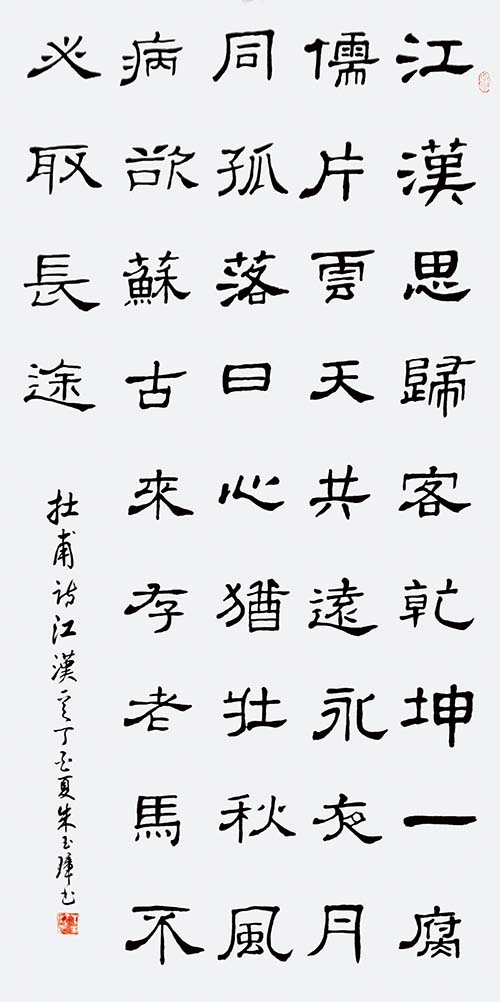 江漢思歸客乾坤一腐
儒片雲天共遠永夜月
同孤落日心猶壯秋風
病欲蘇古來存老馬不
必取長途
杜甫诗江漢丁亥夏朱玉璋书